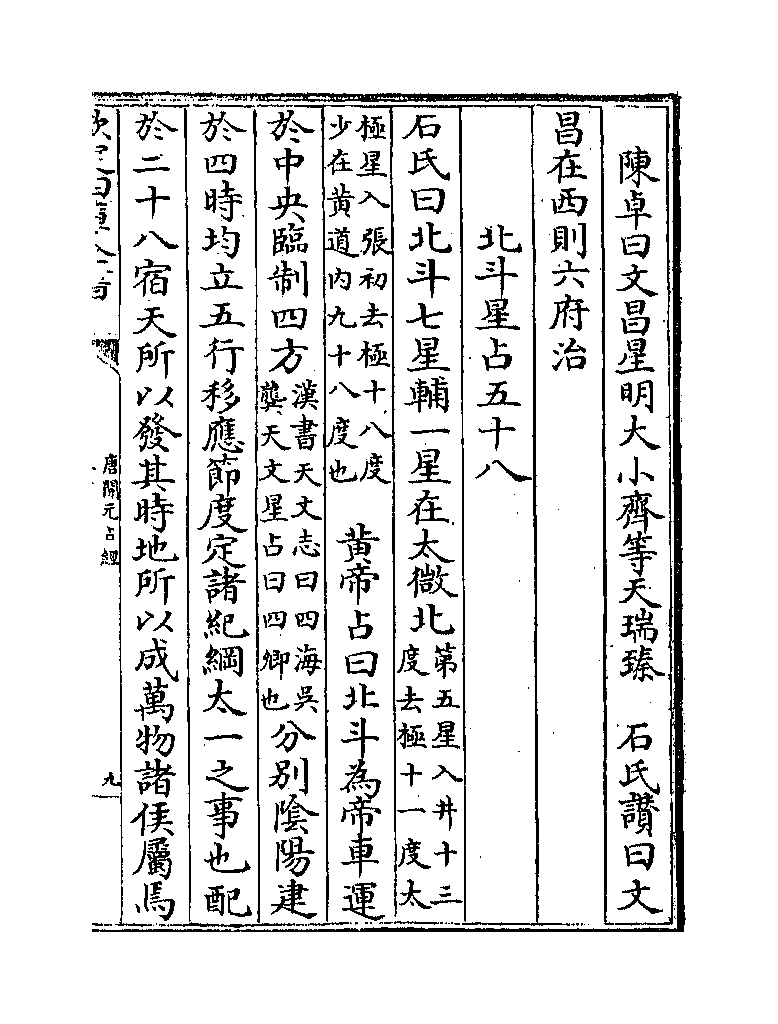 陳卓曰文昌星明大小齊等天瑞臻　石氏讃曰文
昌在西則六府治
北斗星占五十八
石氏曰北斗七星輔一星在太微北第五星入井十三
度去極十一度太
極星入張初去極十八度
少在黄道内九十八度也
黄帝占曰北斗為帝車運
於中央臨制四方漢書天文志曰四海吳
龔天文星占曰四卿也
分别隂陽建
於四時均立五行移應節度定諸紀綱太一之事也配
於二十八宿天所以發其時地所以成萬物諸侯屬焉
唐開元占經
九